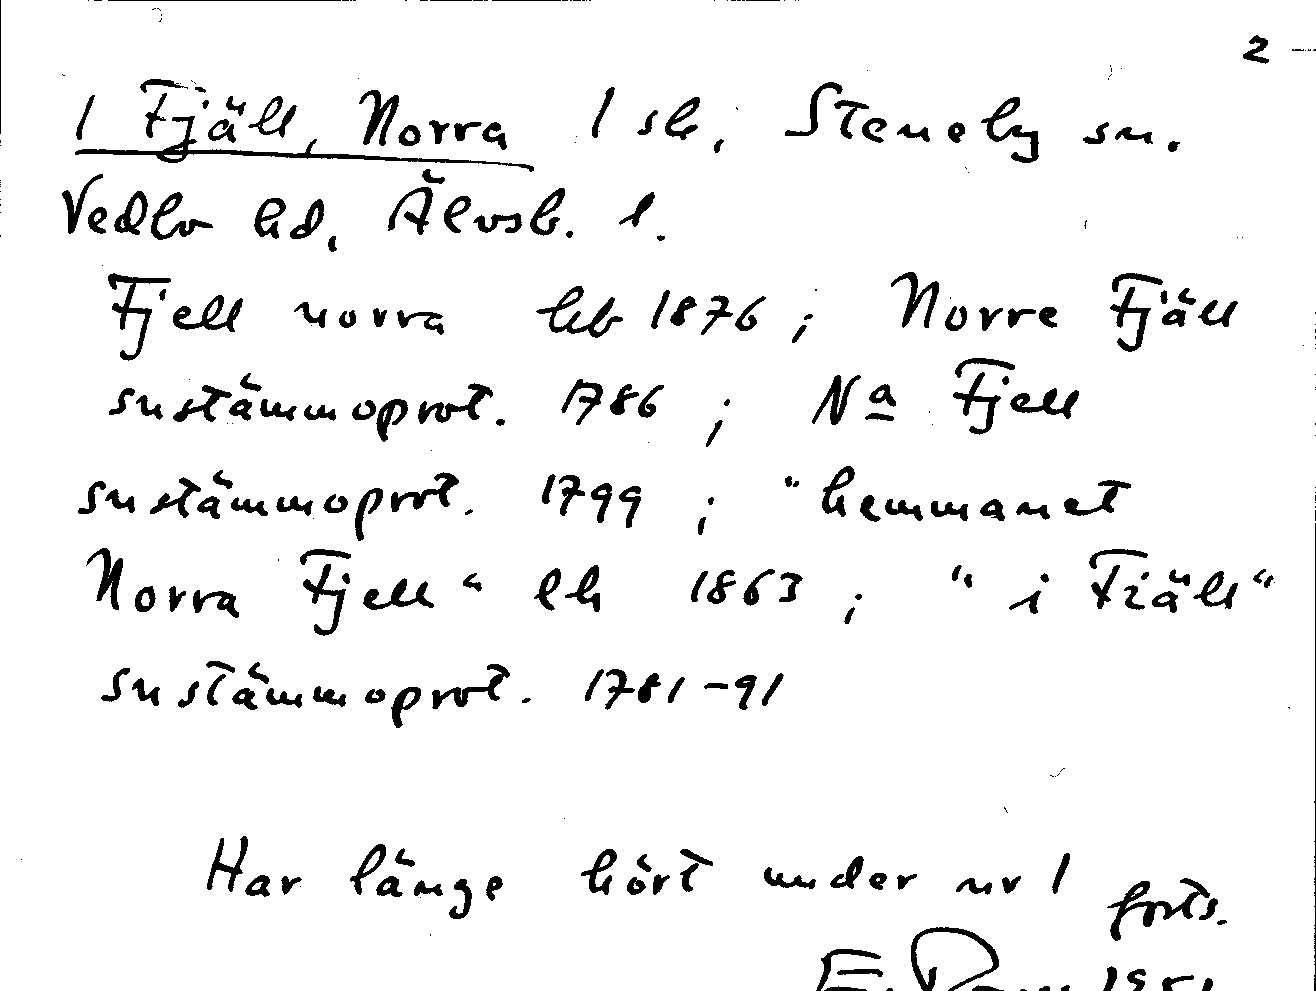 2
1 Fjäll, Norra 1 sk, Steneby sn.
Vedbo hd, Älvsb. l.
Fjell norra hb 1876 ; Norre Fjäll
snstämmoprot. 1786 ; Na Fjell
snstämmoprot. 1799 ; "hemmanet
Norra Fjell" lh 1863 ; "i Fiäll"
snstämmoprot. 1781-91
Har länge hört under nr 1
forts.
E.